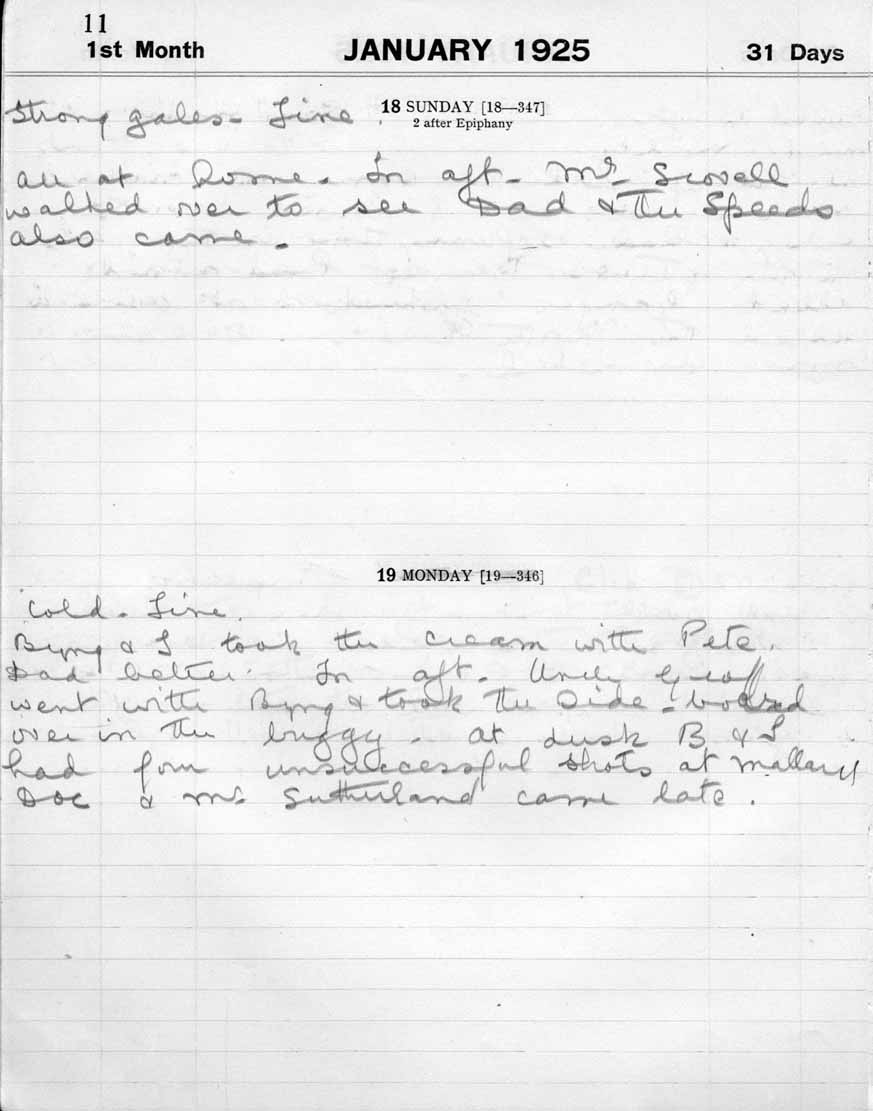 11
1st Month JANUARY 1925 31 Days
18 SUNDAY [18—347]
2 after Epiphany
Strong gales - Fine.
All at home. In aft - Mr Scovell
walked over to see Dad & the Speeds
also came.
19 MONDAY [19—346]
Cold. Fine.
Byng & I took the cream with Pete.
Dad better. In aft. Uncle Geoff
went with Byng & took the side-board
over in the buggy. At dusk B & I
had four unsuccessful shots at mallard
Doc & Mrs Sutherland came late.